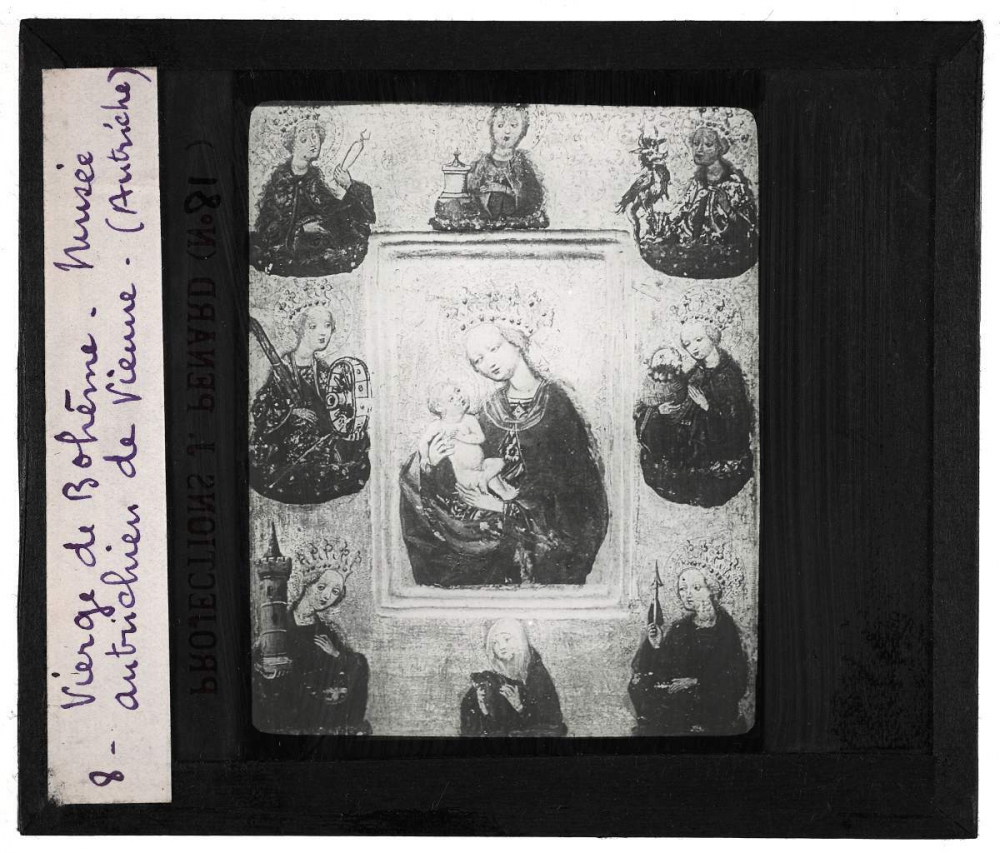 8 - Vierge de Bohême - Musée
autrichien de Vienne - (Autriche)
PROJECTIONS J. PENARD (N°81)